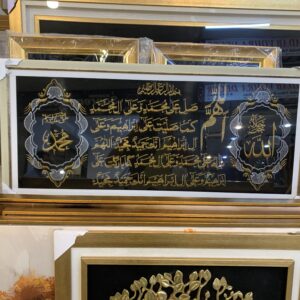 بسم الله الرحمن الرحيم
اللهم
صل على محمد وعلى آل محمد
كما صليت على إبراهيم وعلى
آل إبراهيم إنك حميد مجيد اللهم
بارك على محمد وعلى آل محمد كما باركت على
إبراهيم وعلى آل إبراهيم إنك حميد مجيد
الله
محمد